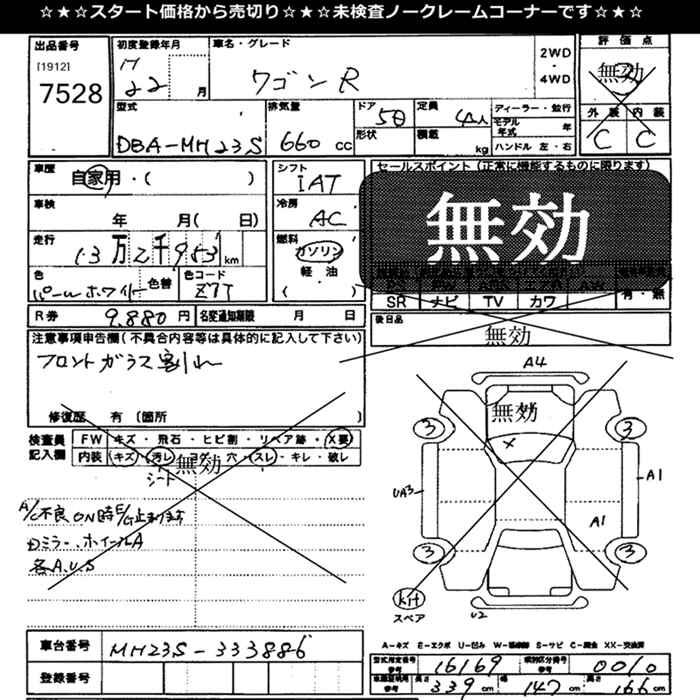 ☆★☆★スタート価格から売切り☆★☆★未検査ノークレームコーナーです☆★☆
出品番号
[1912]
7528
初度登録年月
22 月
車名・グレード
ワゴンR
2WD
・
4WD
評価点
無効
外装 内装
C C
型式
DBA-MH23S
排気量
660 cc
ドア
5D
形状
定員
4人
積載
kg
ディーラー・並行
モデル年式 年
ハンドル 左・右
車歴
自家用・( )
車検
年 月( 日)
走行
13万2千953km
色
パールホワイト
色替
色コード
Z7T
シフト
IAT
冷房
AC
燃料
ガソリン
軽・油
( )
セールスポイント (正常に機能するものに限ります)
無効
SR ナビ TV カワ
有・無
R券
9.880円
名変通知期限 月 日
後日品
無効
注意事項申告欄(不具合内容等は具体的に記入して下さい)
フロントガラス割れ
修復歴 有 〔箇所
検査員
記入欄
FW キズ・飛石・ヒビ割・リペア跡・X要
内装 キズ・汚レ・コゲ・穴・スレ・キレ・破レ
無効
シート
A/C不良 ON時E/G止まります
ホイールA
各A.U.S
A4
無効
3 3
UA3
A1
A1
3 3
kit
スペア
U2
車台番号
MH23S-333886
登録番号
A-キズ E-エクボ U-凹み W-補修跡 S-サビ C-腐食 XX-交換済
型式指定番号
参考
16169
類別区分番号
参考
0010
車庫証明用
参考
長さ 339cm 幅 147cm 高さ 166cm